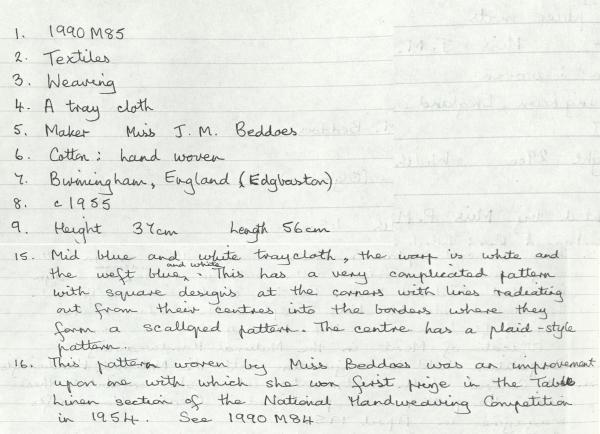 1. 1990 M85
2. Textiles
3. Weaving
4. A tray cloth
5. Maker Miss J. M. Beddoes
6. Cotton; hand woven
7. Birmingham, England (Edgbaston)
8. c 1955
9. Height 37cm Length 56cm
15. Mid blue and white traycloth, the warp is white and
the weft blue and white. This has a very complicated pattern
with square designs at the corners with lines radiating
out from their centres into the borders where they
form a scalloped pattern. The centre has a plaid-style
pattern.
16. This pattern woven by Miss Beddoes was an improvement
upon one with which she won first prize in the Table
Linen section of the National Handweaving Competition
in 1954. See 1990 M84